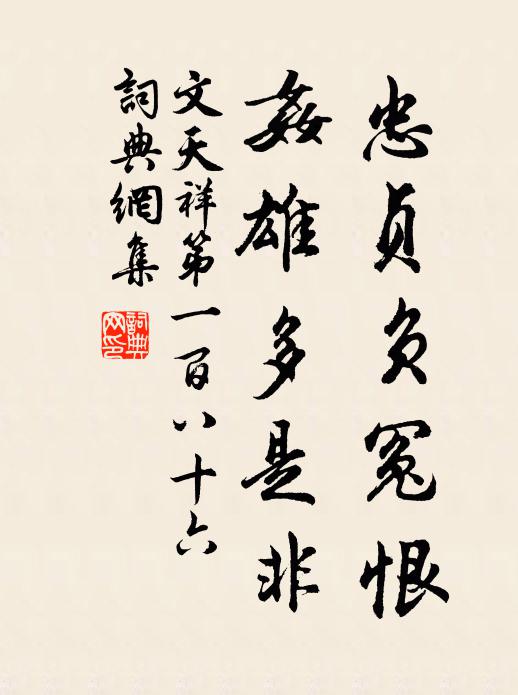 忠貞負冤恨
姦雄多是非
文天祥第一百八十六
詞典網集
詞典網印